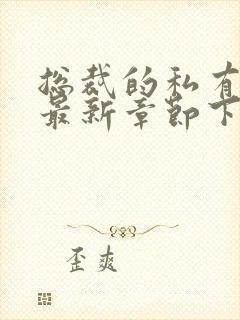 总裁的私有
最新章节下
歪爽